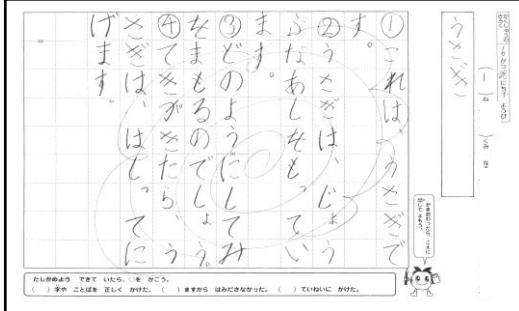 がくしゅうび
さぎょう
(1) ねん ( ) くみ
うさぎ
かきおわったら、こえに
だして よもう。
①これは、うさぎで
す。
②うさぎは、じょう
ぶなあしをもってい
ます。
③どのようにしてみ
をまもるのでしょう。
④てきがきたら、う
さぎは、はしってに
げます。
たしかめよう できて いたら、○を かこう。
( ) 字や ことばを 正しく かけた。 ( ) ますから はみださなかった。 ( ) ていねいに かけた。